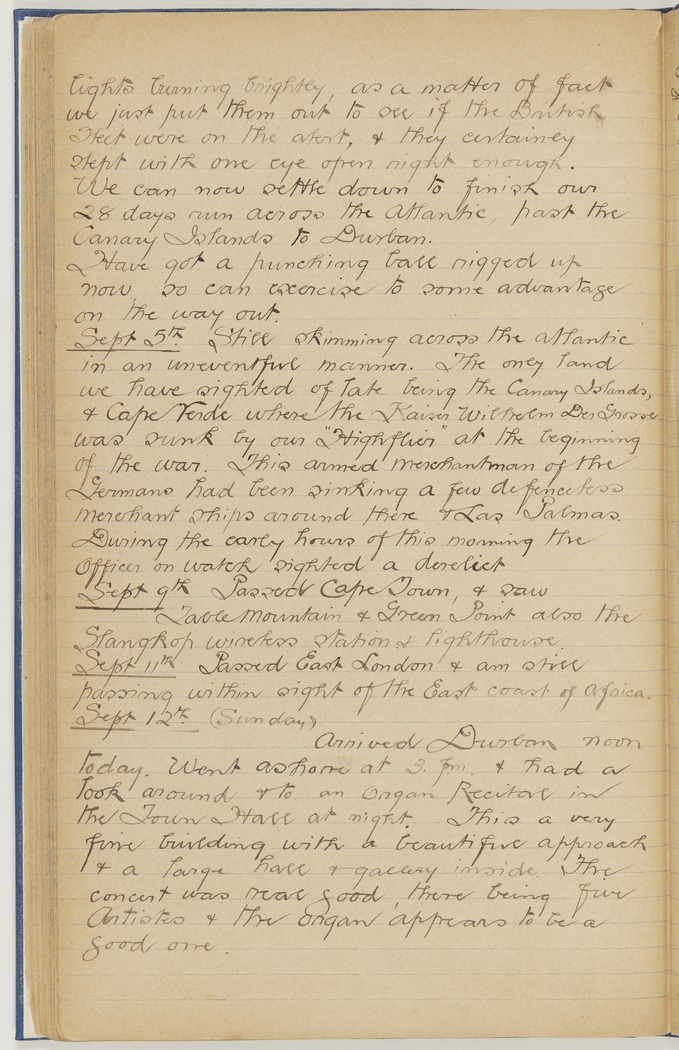 lights burning brightly, as a matter of fact
we just put them out to see if the British
Fleet were on the alert, & they certainly
slept with one eye open right enough.
We can now settle down to finish our
28 days run across the Atlantic, past the
Canary Islands to Durban.
Have got a punching ball rigged up
now, so can exercise to some advantage
on the way out.
Sept 5th Still skimming across the atlantic
in an uneventful manner. The only land
we have sighted of late being the Canary Islands,
& Cape Verde where the Kaiser Wilhelm Der Grosse
was sunk by our "Highflier" at the beginning
of the war. This armed merchantman of the
Germans had been sinking a few defenceless
merchant ships around there & Las Palmas.
During the early hours of this morning the
Officer on watch sighted a derelict
Sept 9th Passed Cape Town, & saw
Table Mountain & Green Point also the
Slangkop wireless station & lighthouse.
Sept 11th Passed East London & am still
passing within sight of the East coast of Africa.
Sept 12th (Sunday)
Arrived Durban noon
today. Went ashore at 3. pm. & had a
look around & to an Organ Recital in
the Town Hall at night. This a very
fine building with a beautiful approach
& a large hall & gallery inside. The
concert was real good, there being five
Artistes & the organ appears to be a
good one.